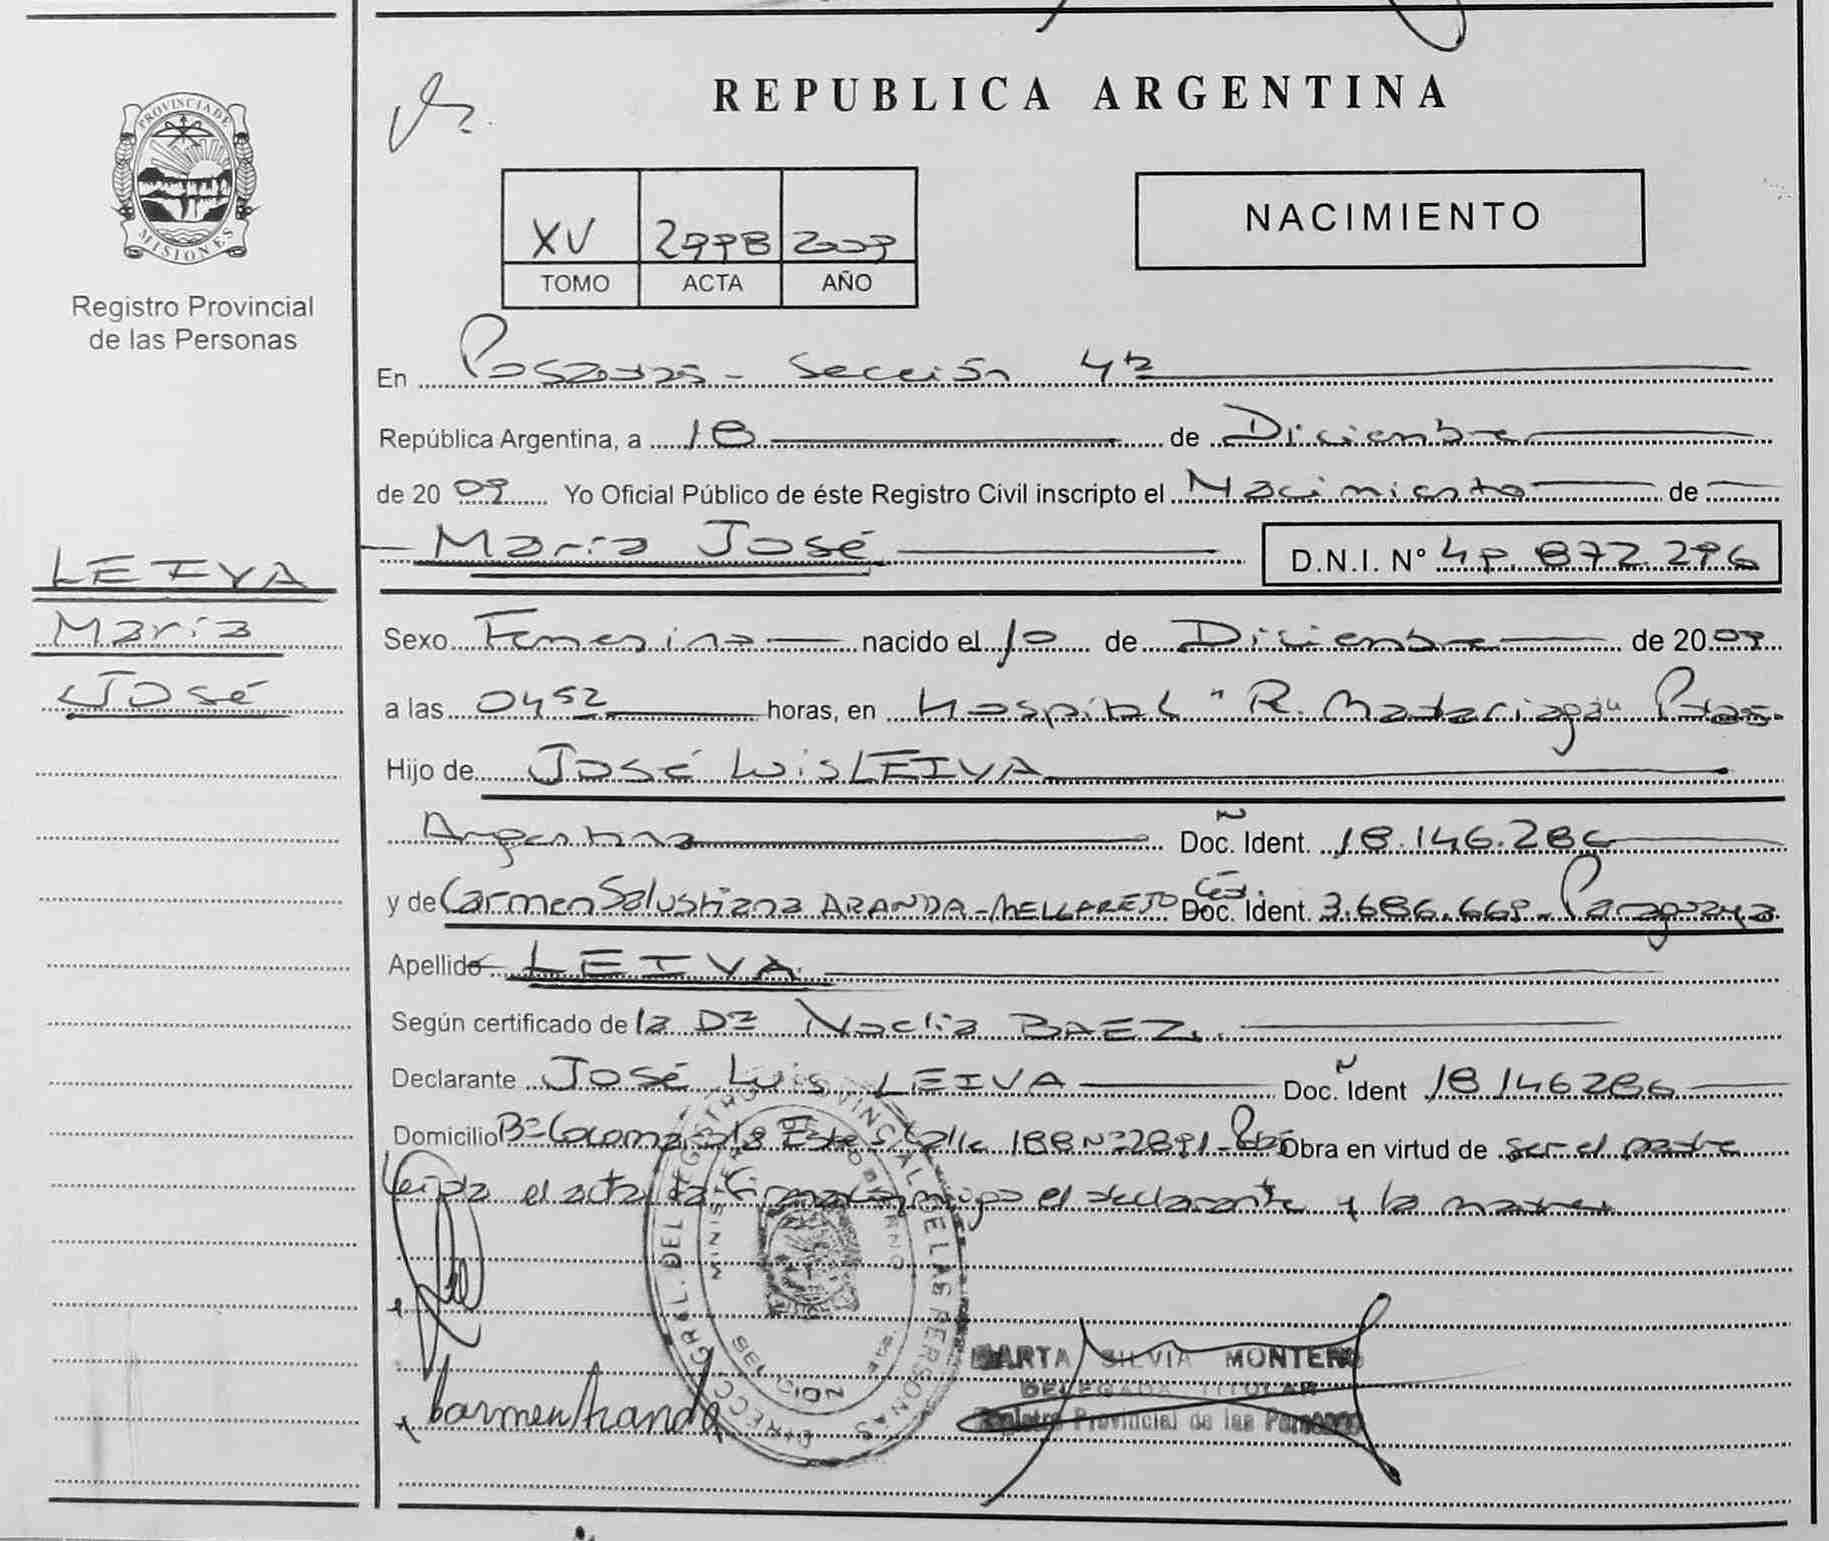 REPUBLICA ARGENTINA
PROVINCIA DE MISIONES
Registro Provincial
de las Personas
XV 2998 2009
TOMO ACTA AÑO
NACIMIENTO
En Posadas - Sección 4ta
República Argentina, a 18 de Diciembre
de 2009 Yo Oficial Público de éste Registro Civil inscripto el Nacimiento de
María José D.N.I. N° 49.872.296
LEIVA
María
José
Sexo Femenino nacido el 10 de Diciembre de 2009
a las 0452 horas, en Hospital "R. Madariaga" Pdas.
Hijo de José Luis LEIVA
Argentina Doc. Ident. 18.146.286
y de Carmen Salustiana ARANDA - MELLAREJO Céd. Doc. Ident. 3.686.669 - Paraguaya
Apellido LEIVA
Según certificado de la Dra Noelia BAEZ.
Declarante José Luis LEIVA Doc. Ident 18146286
Domicilio Bº Cocomarola Este Calle 188 Nº 2891 - Pdas Obra en virtud de ser el padre
Leida el acta la firman conmigo el declarante y la madre
DIRECC. GRAL. DEL REGISTRO PROVINCIAL DE LAS PERSONAS
MINISTERIO DE GOBIERNO
Carmen Aranda
MARTA SILVIA MONTERO
DELEGADA TITULAR
Registro Provincial de las Personas